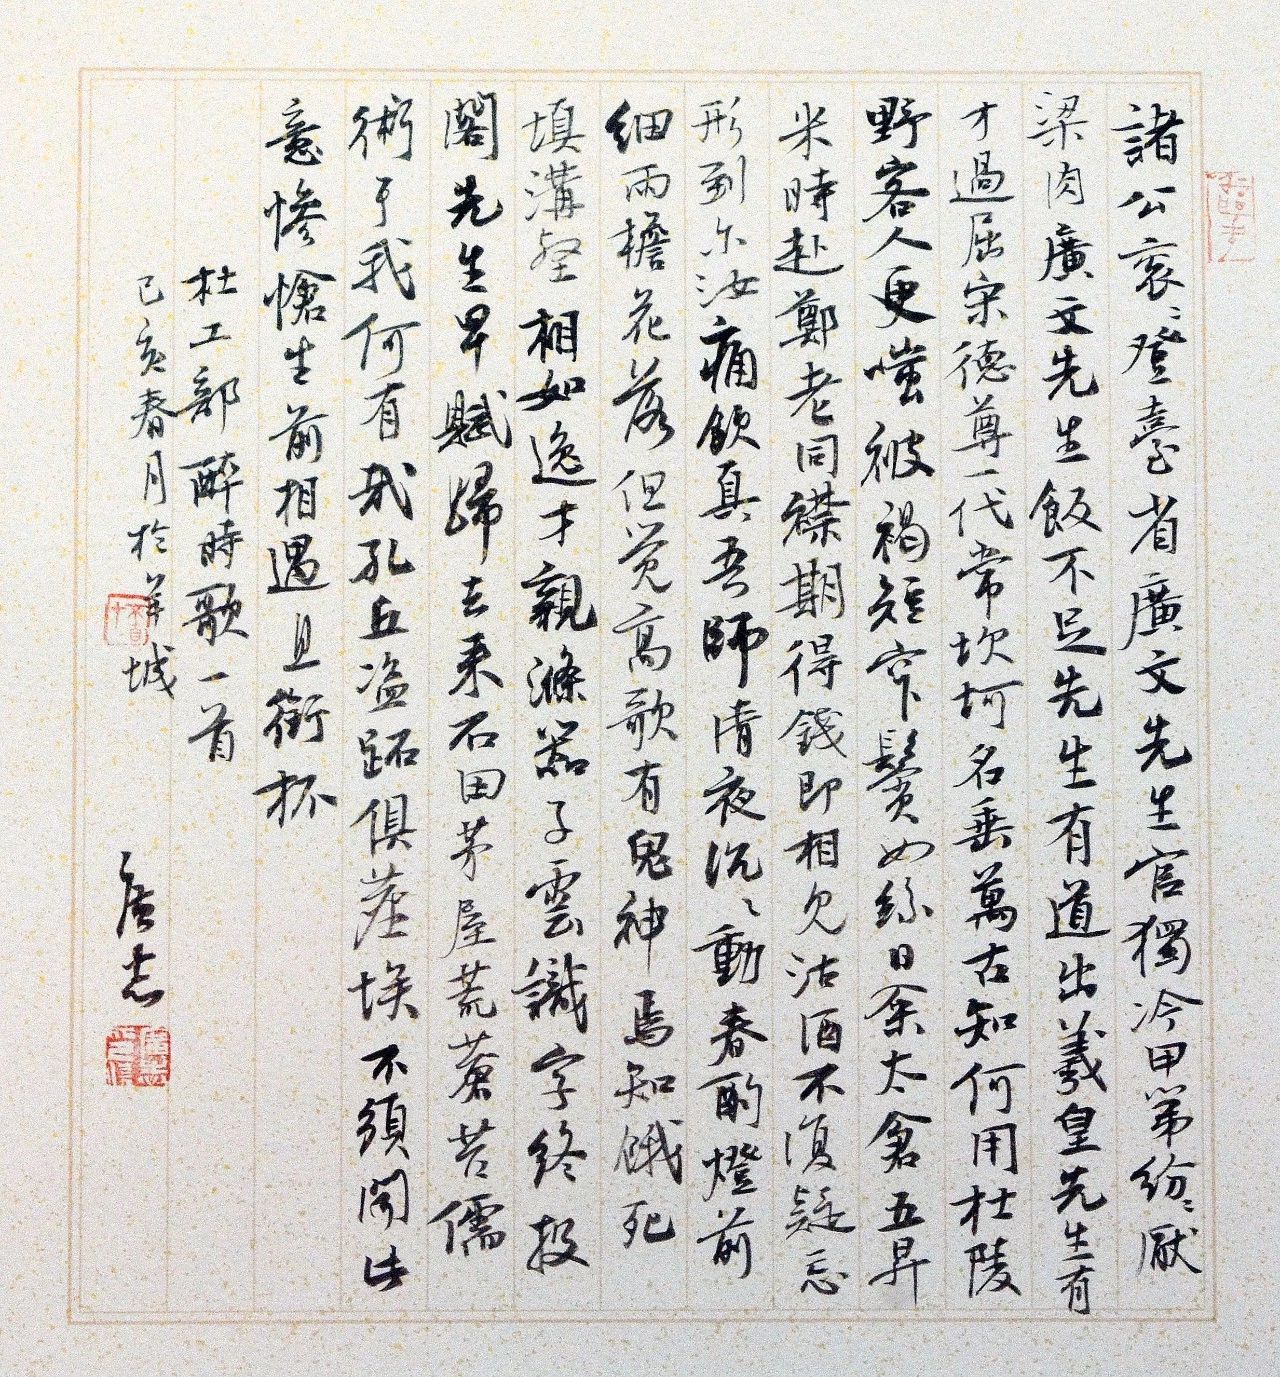 諸公衮〻登臺省廣文先生官獨冷甲第紛〻厭
梁肉廣文先生飯不足先生有道出羲皇先生有
才過屈宋德尊一代常坎坷名垂萬古知何用杜陵
野客人更嗤被褐短窄鬢如絲日籴太倉五升
米時赴鄭老同襟期得錢即相覓沽酒不復疑忘
形到尔汝痛飲真吾師清夜沉〻動春酌燈前
細雨檐花落但覚高歌有鬼神焉知餓死
填溝壑相如逸才親滌器子雲識字終投
閣先生早賦歸去来石田茅屋荒蒼苔儒
術于我何有哉孔丘盗跖俱塵埃不須聞此
意惨愴生前相遇且銜杯
杜工部醉時歌一首
己亥春月於羊城
廣志